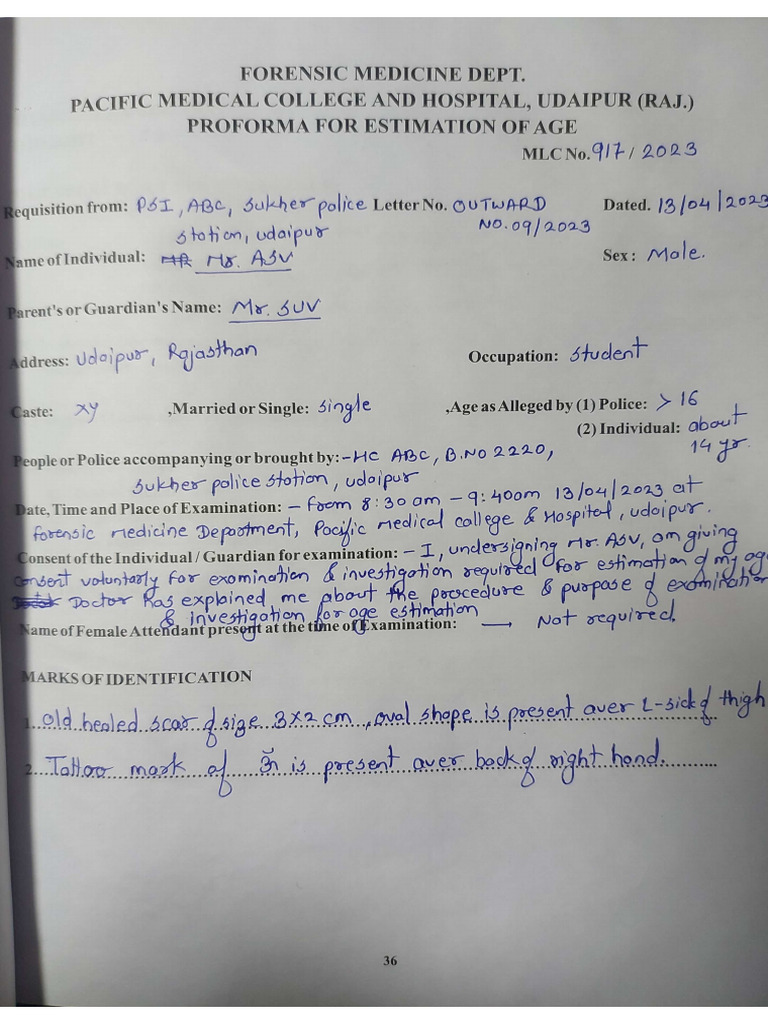 FORENSIC MEDICINE DEPT.
PACIFIC MEDICAL COLLEGE AND HOSPITAL, UDAIPUR (RAJ.)
PROFORMA FOR ESTIMATION OF AGE
MLC No. 917 / 2023
Requisition from: PSI, ABC, Sukher police Letter No. OUTWARD Dated. 13/04/2023
station, udaipur NO. 09/2023
Name of Individual: Mr. ASV Sex : Male.
Parent's or Guardian's Name: Mr. SUV
Address: Udaipur, Rajasthan Occupation: student
Caste: xy ,Married or Single: single ,Age as Alleged by (1) Police: > 16
(2) Individual: about
People or Police accompanying or brought by:- HC ABC, B.NO 2220, 14 yr.
Sukher police station, udaipur
Date, Time and Place of Examination: - from 8:30 am - 9:40am 13/04/2023 at
forensic Medicine Department, Pacific Medical college & Hospital, udaipur.
Consent of the Individual / Guardian for examination: - I, undersigning Mr. ASV, am giving
consent voluntarly for examination & investigation required for estimation of my age
Doctor has explained me about the procedure & purpose of examination
& investigation for age estimation
Name of Female Attendant present at the time of Examination: — Not required.
MARKS OF IDENTIFICATION
1. Old healed scar of size 3x2 cm, oval shape is present over L-sick of thigh
2. Tattoo mark of ॐ is present over back of right hand.
36